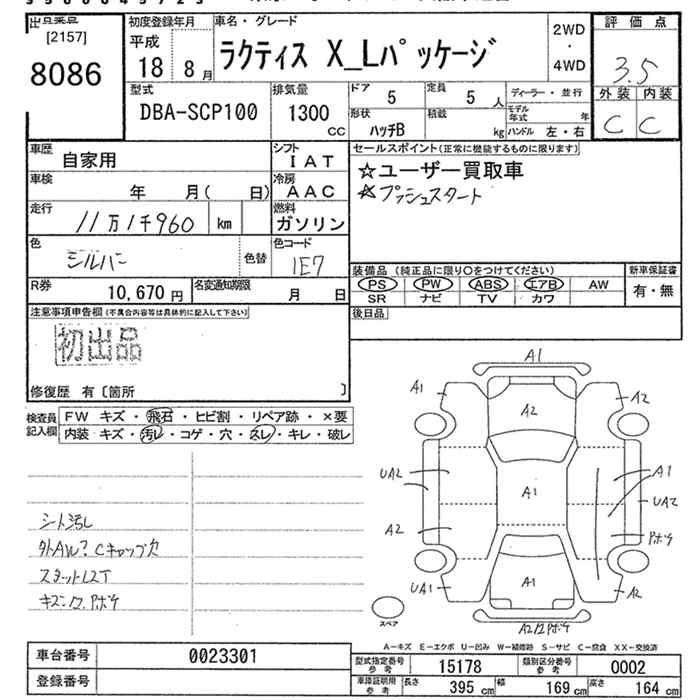 出品番号
[2157]
8086
初度登録年月
平成
18 8月
車名・グレード
ラクティス X_Lパッケージ
2WD
・
4WD
評価点
3.5
外装 内装
C C
型式
DBA-SCP100
排気量
1300
CC
ドア
5
定員
5 人
ディーラー・並行
形状
ハッチB
積載
kg
モデル年式 年
ハンドル 左・右
車歴
自家用
シフト
IAT
車検
年 月( 日)
冷房
AAC
走行
11万1千960 km
燃料
ガソリン
色
シルバー
色替
色コード
1E7
R券
10,670 円
名変通知期限
月 日
セールスポイント(正常に機能するものに限ります)
☆ユーザー買取車
☆プッシュスタート
装備品 (純正品に限り○をつけてください)
PS PW ABS エアB AW
SR ナビ TV カワ
新車保証書
有・無
後日品
注意事項申告欄(不具合内容等は具体的に記入して下さい)
初出品
修復歴 有〔箇所 〕
検査員記入欄
FW キズ・飛石・ヒビ割・リペア跡・×要
内装 キズ・汚レ・コゲ・穴・スレ・キレ・破レ
シート汚し
外AW?Cキャップ欠
スタットレスT
キズ・ワ.Pボケ
A1
A1
A2
A2
UA2
A1
A1
UA2
A2
Pボケ
UA1
A1
A2
A2ワPボケ
スペア
A-キズ E-エクボ U-凹み W-補修跡 S-サビ C-腐食 XX-交換済
車台番号
0023301
登録番号
型式指定番号 参考
15178
類別区分番号 参考
0002
車庫証明用 参考
長さ 395 cm
幅 169 cm
高さ 164 cm